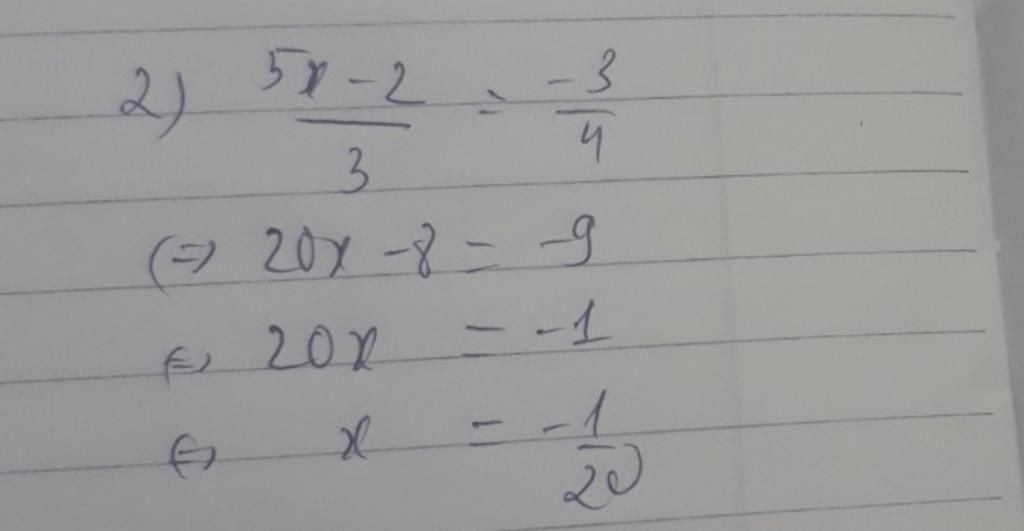 2) (5x - 2)/3 = -3/4
(=> 20x - 8 = -9
<=> 20x = -1
<=> x = -1/20